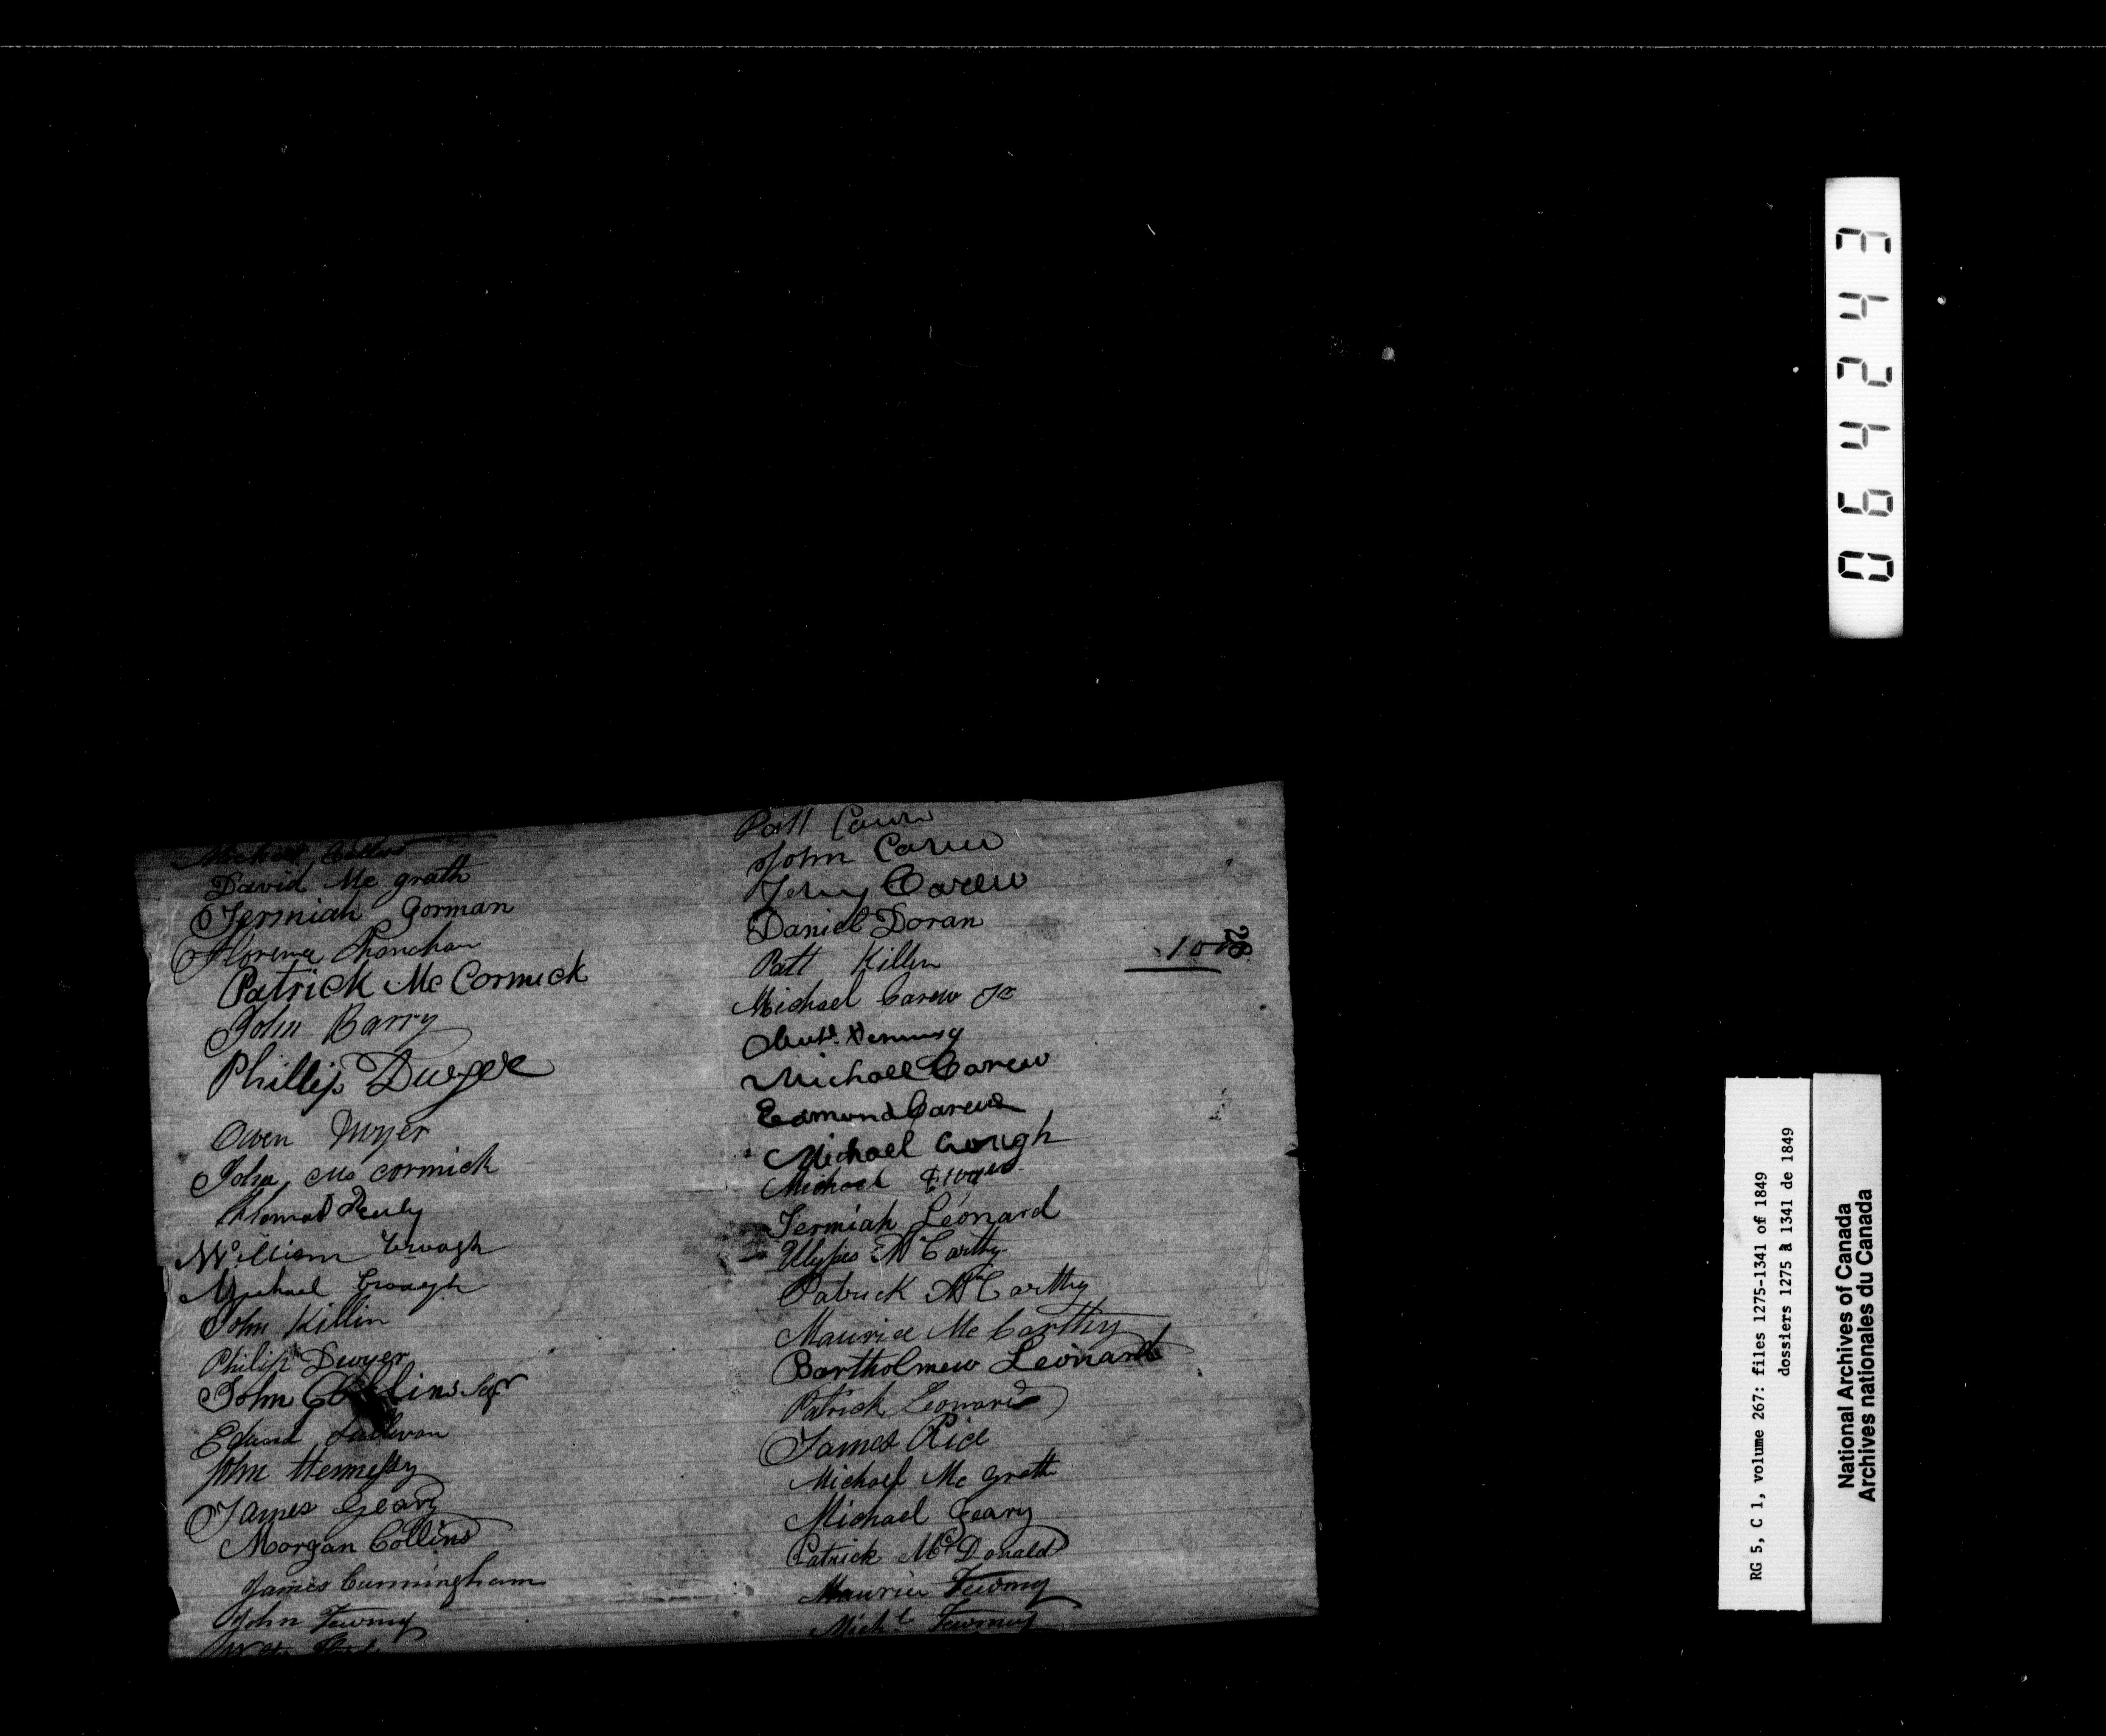 Michael
David Mc grath
Jermiah Gorman
Florence
Patrick Mc Cormick
John Barry
Phillip Dwyer
Owen Dwyer
John Mc cormick
Thomas
William
Michael
John Killin
Philip Dwyer
John Collins
Edward Sullivan
John Hennessy
James Geary
Morgan Collins
James Cunningham
John
Patt Carew
John Carew
Jerry Carew
Daniel Doran
Patt Killen
Michael Carew Jr
Michael Carew
Edmond Carew
Michael
Michael
Jermiah Leonard
Ulysses McCarthy
Patrick McCarthy
Maurice Mc Carthy
Bartholmew Leonard
Patrick Leonard
James Rice
Michael Mc Grath
Michael Geary
Patrick McDonald
Maurice
Michl
064243
RG 5, C 1, volume 267: files 1275-1341 of 1849
dossiers 1275 à 1341 de 1849
National Archives of Canada
Archives nationales du Canada